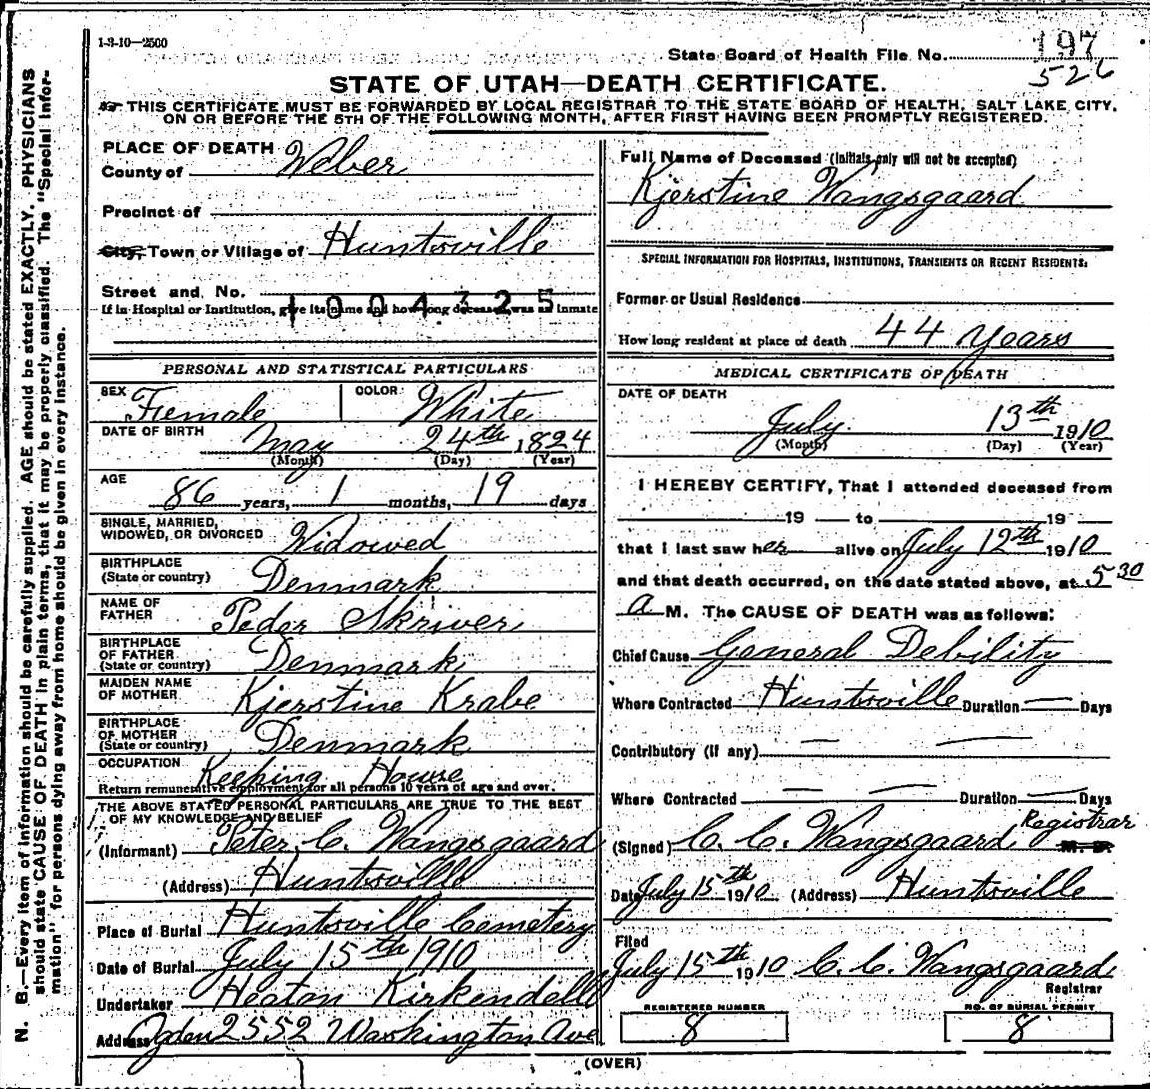 1-3-10—2500
State Board of Health File No. 197
526
STATE OF UTAH—DEATH CERTIFICATE.
THIS CERTIFICATE MUST BE FORWARDED BY LOCAL REGISTRAR TO THE STATE BOARD OF HEALTH, SALT LAKE CITY,
ON OR BEFORE THE 5TH OF THE FOLLOWING MONTH, AFTER FIRST HAVING BEEN PROMPTLY REGISTERED.
PLACE OF DEATH
County of Weber
Precinct of
City, Town or Village of Huntsville
Street and No.
1004325
If in Hospital or Institution, give its name and how long deceased was an inmate
PERSONAL AND STATISTICAL PARTICULARS
SEX Female COLOR: White
DATE OF BIRTH May 24th 1824
(Month) (Day) (Year)
AGE 86 years, 1 months, 19 days
SINGLE, MARRIED,
WIDOWED, OR DIVORCED Widowed
BIRTHPLACE
(State or country) Denmark
NAME OF
FATHER Peder Skriver
BIRTHPLACE
OF FATHER
(State or country) Denmark
MAIDEN NAME
OF MOTHER Kjerstine Krabe
BIRTHPLACE
OF MOTHER
(State or country) Denmark
OCCUPATION Keeping House
Return remunerative employment for all persons 10 years of age and over.
THE ABOVE STATED PERSONAL PARTICULARS ARE TRUE TO THE BEST
OF MY KNOWLEDGE AND BELIEF
(Informant) Peter C. Wangsgaard
(Address) Huntsville
Place of Burial Huntsville Cemetery
Date of Burial July 15th 1910
Undertaker Heaton Kirkendell
Address Ogden 2552 Washington Ave
Full Name of Deceased (Initials only will not be accepted)
Kjerstine Wangsgaard
SPECIAL INFORMATION FOR HOSPITALS, INSTITUTIONS, TRANSIENTS OR RECENT RESIDENTS:
Former or Usual Residence
How long resident at place of death 44 Years
MEDICAL CERTIFICATE OF DEATH
DATE OF DEATH
July 13th 1910
(Month) (Day) (Year)
I HEREBY CERTIFY, That I attended deceased from
19 to 19
that I last saw her alive on July 12th 1910
and that death occurred, on the date stated above, at 5 30
a M. The CAUSE OF DEATH was as follows:
Chief Cause General Debility
Where Contracted Huntsville Duration — Days
Contributory (if any) — —
Where Contracted — — Duration — Days
(Signed) C. C. Wangsgaard, Registrar M. D.
Date July 15th 1910 (Address) Huntsville
Filed
July 15th 1910 C. C. Wangsgaard
Registrar
REGISTERED NUMBER
8
NO. OF BURIAL PERMIT
8
(OVER)
N. B.—Every item of information should be carefully supplied. AGE should be stated EXACTLY. PHYSICIANS
should state CAUSE OF DEATH in plain terms, that it may be properly classified. The "Special Infor-
mation" for persons dying away from home should be given in every instance.